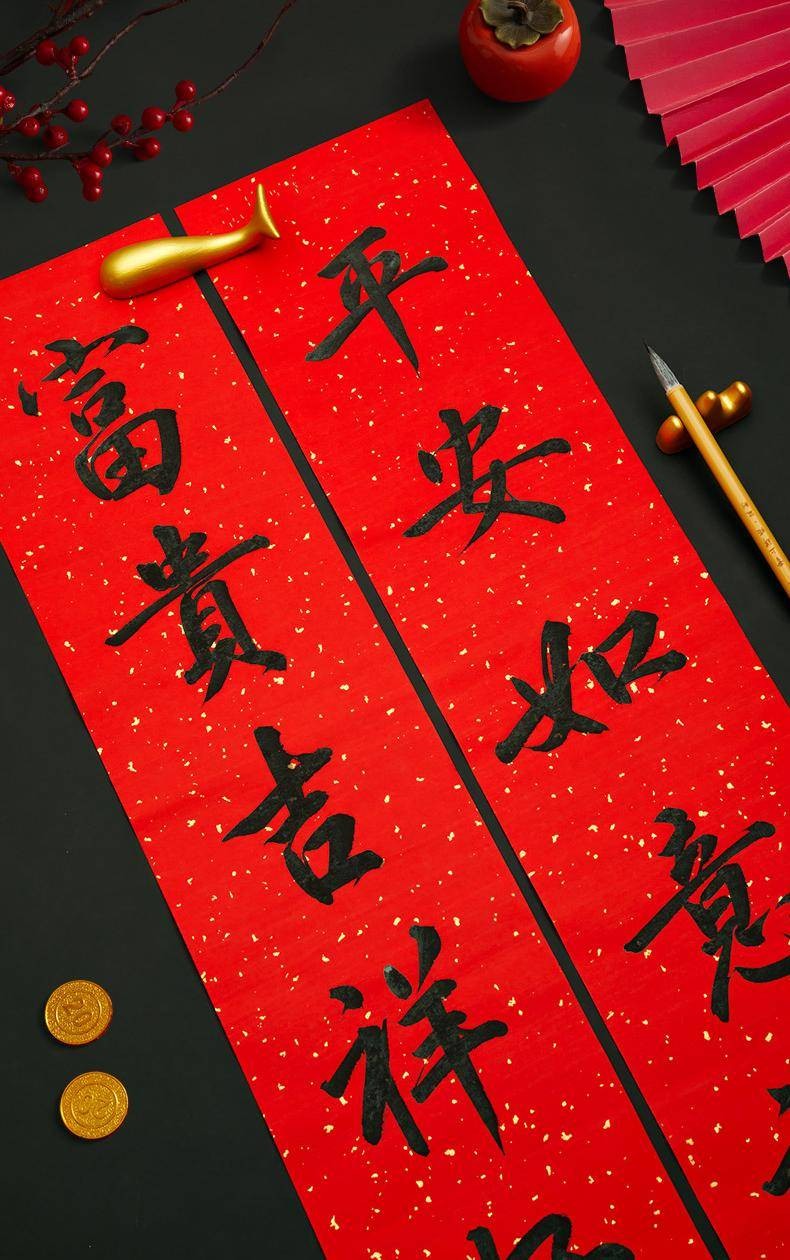 平安如意
富貴吉祥
20
20